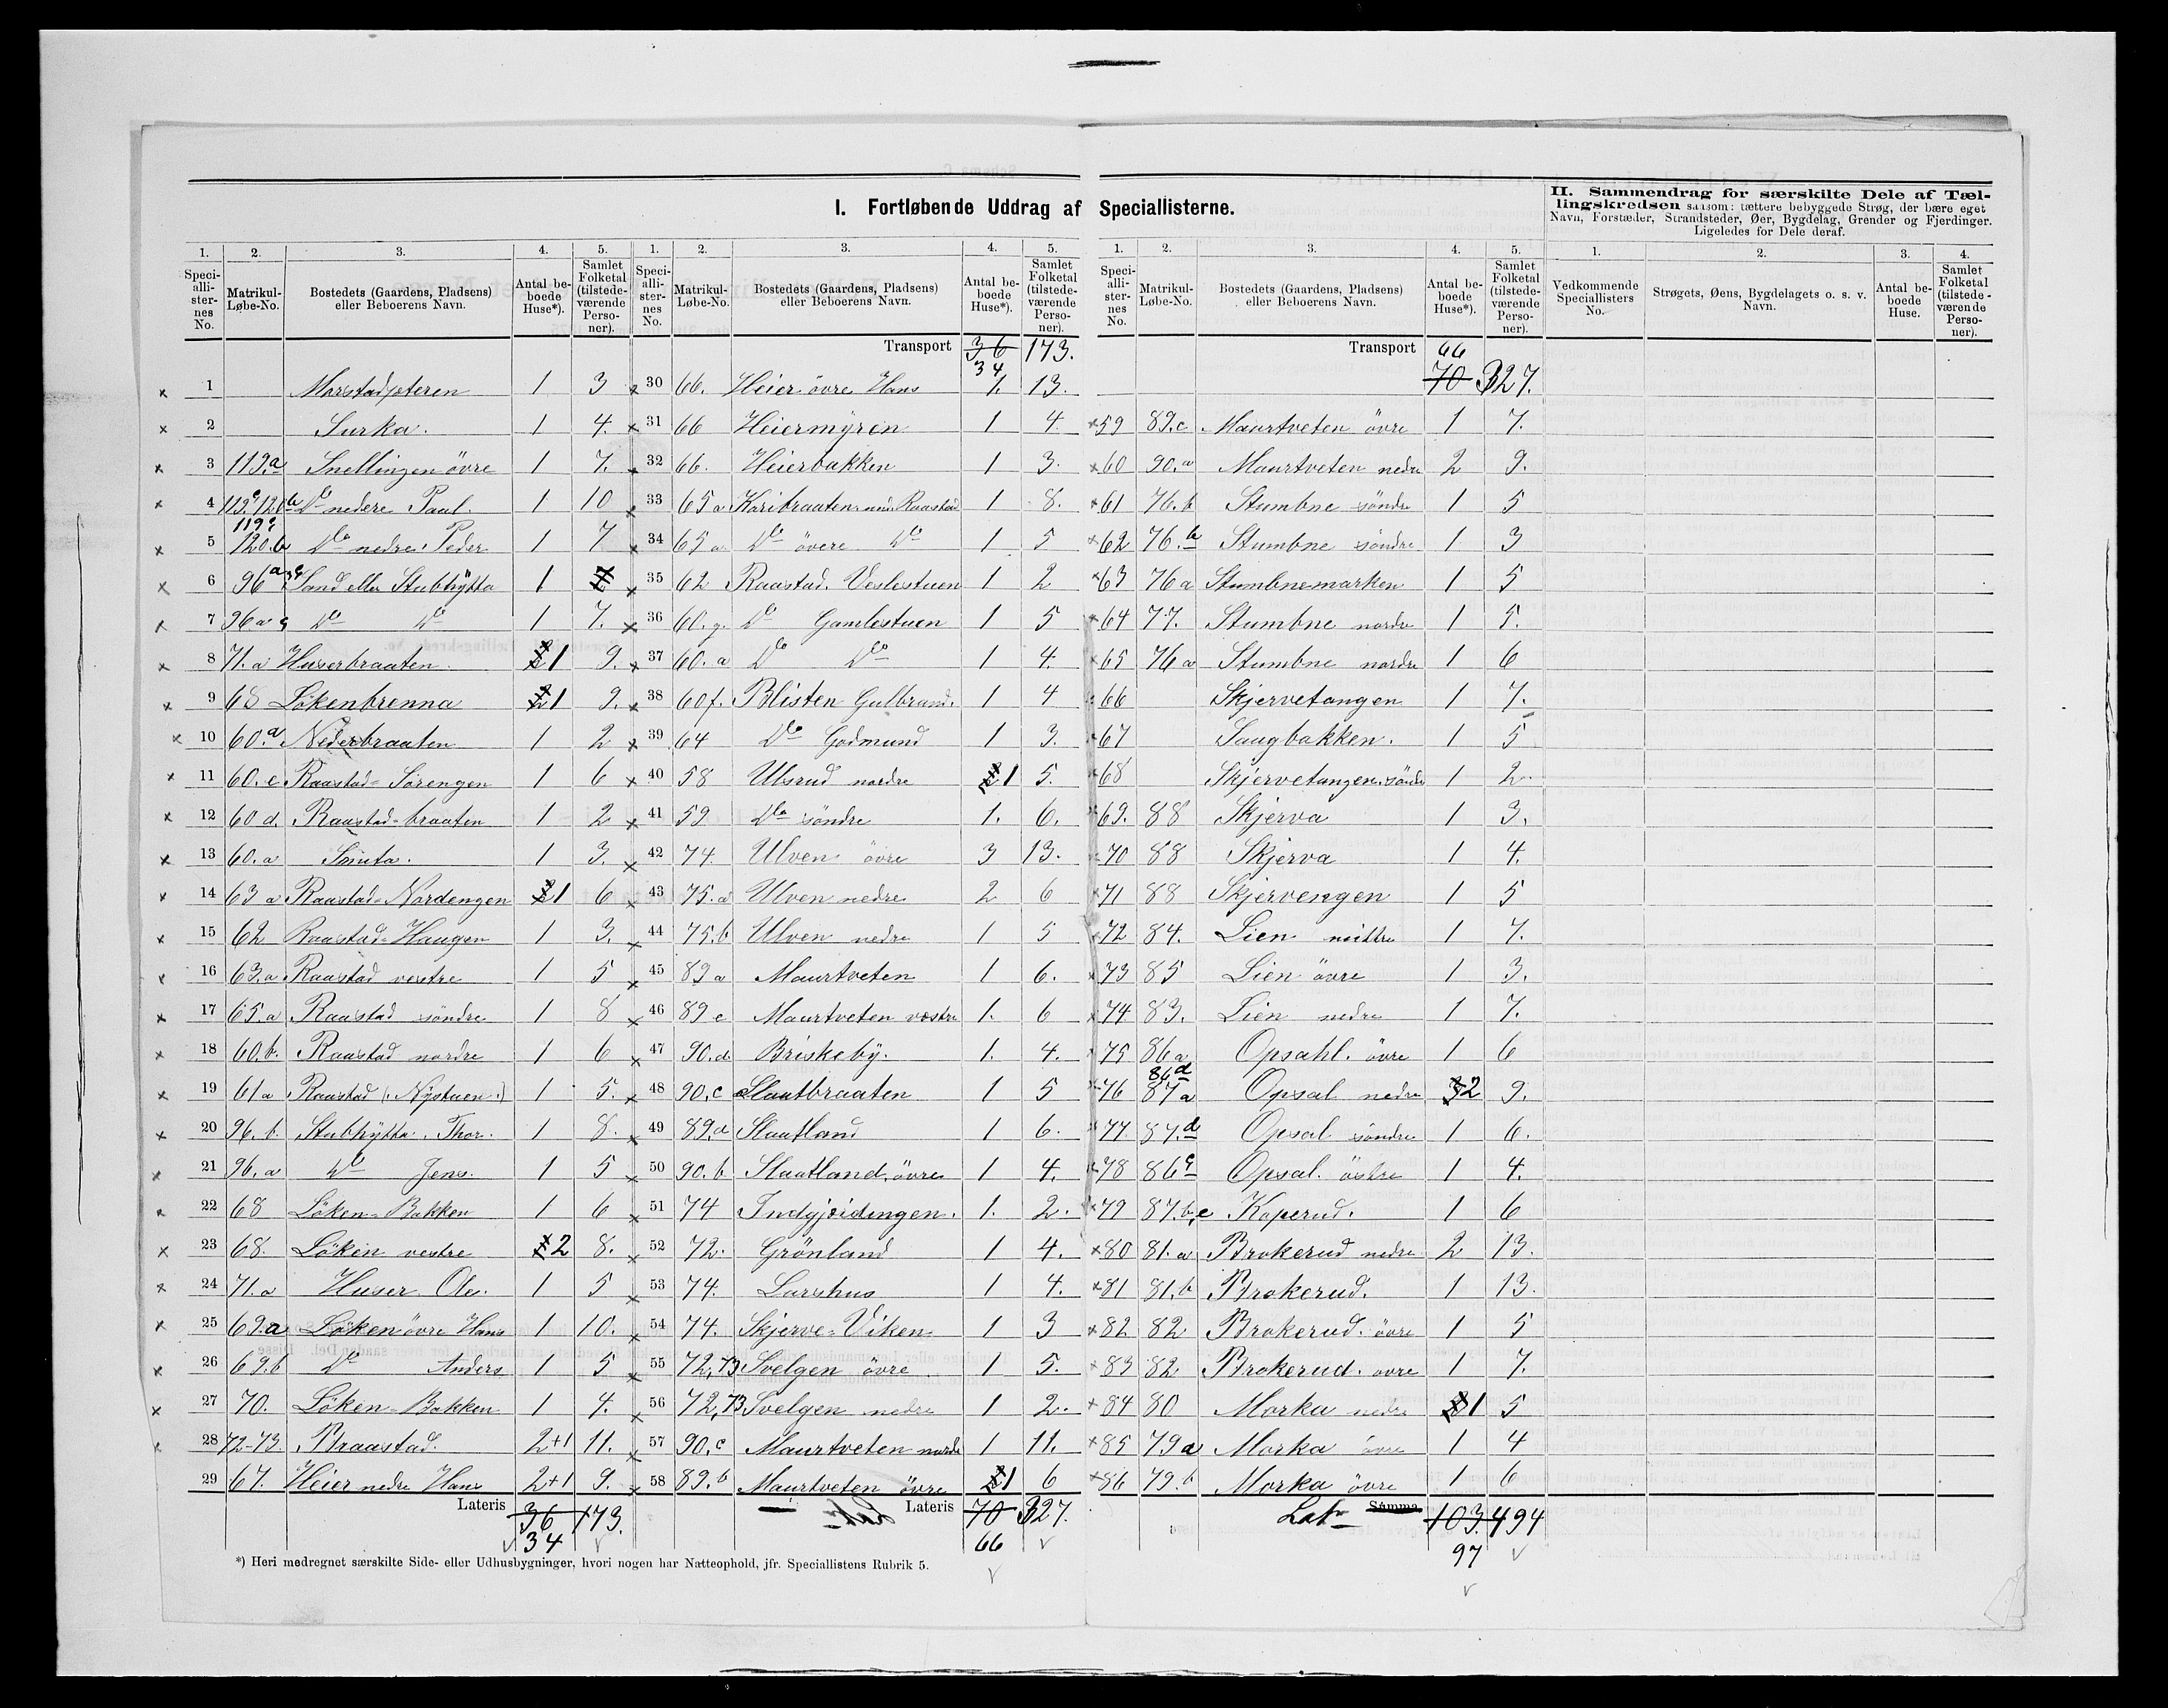 I. Fortløbende Uddrag af Speciallisterne.
II. Sammendrag for særskilte Dele af Tællingskredsen saasom: tættere bebyggede Strøg, der bære eget Navn, Forstæder, Strandsteder, Øer, Bygdelag, Grender og Fjerdinger. Ligeledes for Dele deraf.
1. 2. 3. 4. 5.
Speciallisternes No. Matrikul-Løbe-No. Bostedets (Gaardens, Pladsens) eller Beboerens Navn. Antal beboede Huse*). Samlet Folketal (tilstedeværende Personer).
1 3
2 Surka. 1 4.
3 119.a Snellingen övre 1 7.
4 Do nedere Paal. 1 10
5 119c 120.b Do nedre Peder 1 7
6 96a Sand eller Stubhytta 1
7 96a Do Do 1 7.
8 71.a Huserbraaten 1 9.
9 68 Lökenbrenna 1 2.
10 60.d Nederbraaten 1 2
11 60.c Raastad-Sörengen 1 6
12 60 d. Raastad-braaten 1 2
13 60.a Snuta. 1 3.
14 63 a Raastad-Nordengen 1 6
15 62 Raastad-Haugen 1 3.
16 63.a Raastad vestre 1 5
17 65.a Raastad söndre 1 8
18 60.b. Raastad nordre 1 6
19 61a Raastad (Nystuen.) 1 5.
20 96.b. Stubhytta. Thor. 1 8.
21 96.a Do Jens. 1 5
22 68 Löken-Bakken 1 6
23 68. Löken vestre 2 8.
24 71.a Huser Ole. 1 5
25 69.a Löken övre Hans 1 10.
26 69.b Do Anders 1 5
27 70. Löken-Bakken 1 4.
28 72-73. Braastad. 2+1 11.
29 67. Heier nedre Hans 2+1 9.
Lateris 36 173.
34
*) Heri medregnet særskilte Side- eller Udhusbygninger, hvori nogen har Natteophold, jfr. Speciallistens Rubrik 5.
1. 2. 3. 4. 5.
Speciallisternes No. Matrikul-Løbe-No. Bostedets (Gaardens, Pladsens) eller Beboerens Navn. Antal beboede Huse*). Samlet Folketal (tilstedeværende Personer).
Transport 36 173.
34
30 66. Heier övre Hans 1. 13.
31 66 Heiermyren 1 4.
32 66. Heierbakken 1 3.
33 65 a Karibraaten Raastad 1 8.
34 65 a. Do övere Do 1 5
35 62 Raastad. Veslestuen 1 2
36 60.g. Do Gamlestuen 1 5
37 60.a Do Do 1 4.
38 60f. Blisten Gulbrand. 1 4
39 64 Do Godmund 1 3.
40 58 Ulsrud nordre 1 5.
41 59 Do söndre 1. 6.
42 74. Ulven övre 3 13.
43 75.a Ulven nedre 2 6
44 75.b Ulven nedre 1 5
45 89 a Maurtveten 1 6.
46 89 e Maurtveten vestre 1. 6
47 90.d. Briskeby. 1. 4.
48 90.c Slaatbraaten 1 5
49 89.d Slaatland 1 6.
50 90.b Slaatland, övre 1 4.
51 74 Indgjeidingen. 1. 2.
52 72. Grönland 1 4.
53 74. Larshus 1 4.
54 74. Skjerve-Viken 1 3
55 72,73 Svelgen övre 1 5.
56 72,73 Svelgen nedre 1 2.
57 90.c Maurtveten nordre 1 11.
58 89.b Maurtveten övre 1 6
Lateris 70 327.
66
1. 2. 3. 4. 5.
Speciallisternes No. Matrikul-Løbe-No. Bostedets (Gaardens, Pladsens) eller Beboerens Navn. Antal beboede Huse*). Samlet Folketal (tilstedeværende Personer).
Transport 66
70 327.
59 89.c Maurtveten övre 1 7.
60 90.a Maurtveten nedre 2 9.
61 76.b Stumbne söndre 1 5
62 76.b Stumbne söndre 1 3
63 76 a Stumbnemarken 1 5
64 77. Stumbne nordre 1 5.
65 76 a Stumbne nordre 1 6
66 Skjervetangen 1 7.
67 Saugbakken. 1 5
68 Skjervetangen. söndre 1 2.
69. 88 Skjerva 1 3.
70 88 Skjerva 1 4.
71 88 Skjervengen 1 5
72 84. Lien mittre 1 7.
73 85 Lien övre 1 3.
74 83. Lien nedre 1 7.
75 86a Opsahl. övre 1 6
76 86d 87a Opsal nedre 2 9.
77. 87.d Opsal söndre 1 6.
78 86c Opsal. östre 1 4.
79 87.b,e Koperud. 1 6
80 81.a Brokerud nedre 2 13.
81 81.b Brokerud. 1 13.
82 82 Brokerud. övre 1 5
83 82 Brokerud. övre 1 7.
84 80 Morka nedre 1 5
85 79a Morka övre 1 4
86 79.b Morka övre 1 6
Lat. Summa 103. 494
97
1. 2. 3. 4.
Vedkommende Speciallisters No. Strøgets, Øens, Bygdelagets o. s. v. Navn. Antal beboede Huse. Samlet Folketal (tilstedeværende Personer).